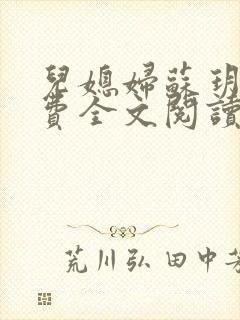 兒媳婦蘇玥
費全文閱讀
荒川弘 田中芳